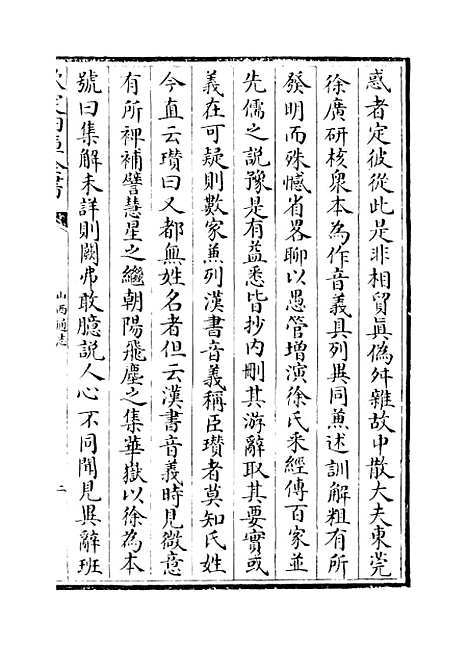 惑者定彼從此是非相貿真偽舛雜故中散大夫東莞
徐廣研核衆本為作音義具列異同兼述訓解粗有所
發明而殊憾省畧聊以愚管增演徐氏采經傳百家並
先儒之説豫是有益悉皆抄内刪其游辭取其要實或
義在可疑則數家兼列漢書音義稱臣瓚者莫知氏姓
今直云瓚曰又都無姓名者但云漢書音義時見微意
有所裨補譬慧星之繼朝陽飛塵之集華嶽以徐為本
號曰集解未詳則闕弗敢臆説人心不同聞見異辭班
山西通志
二